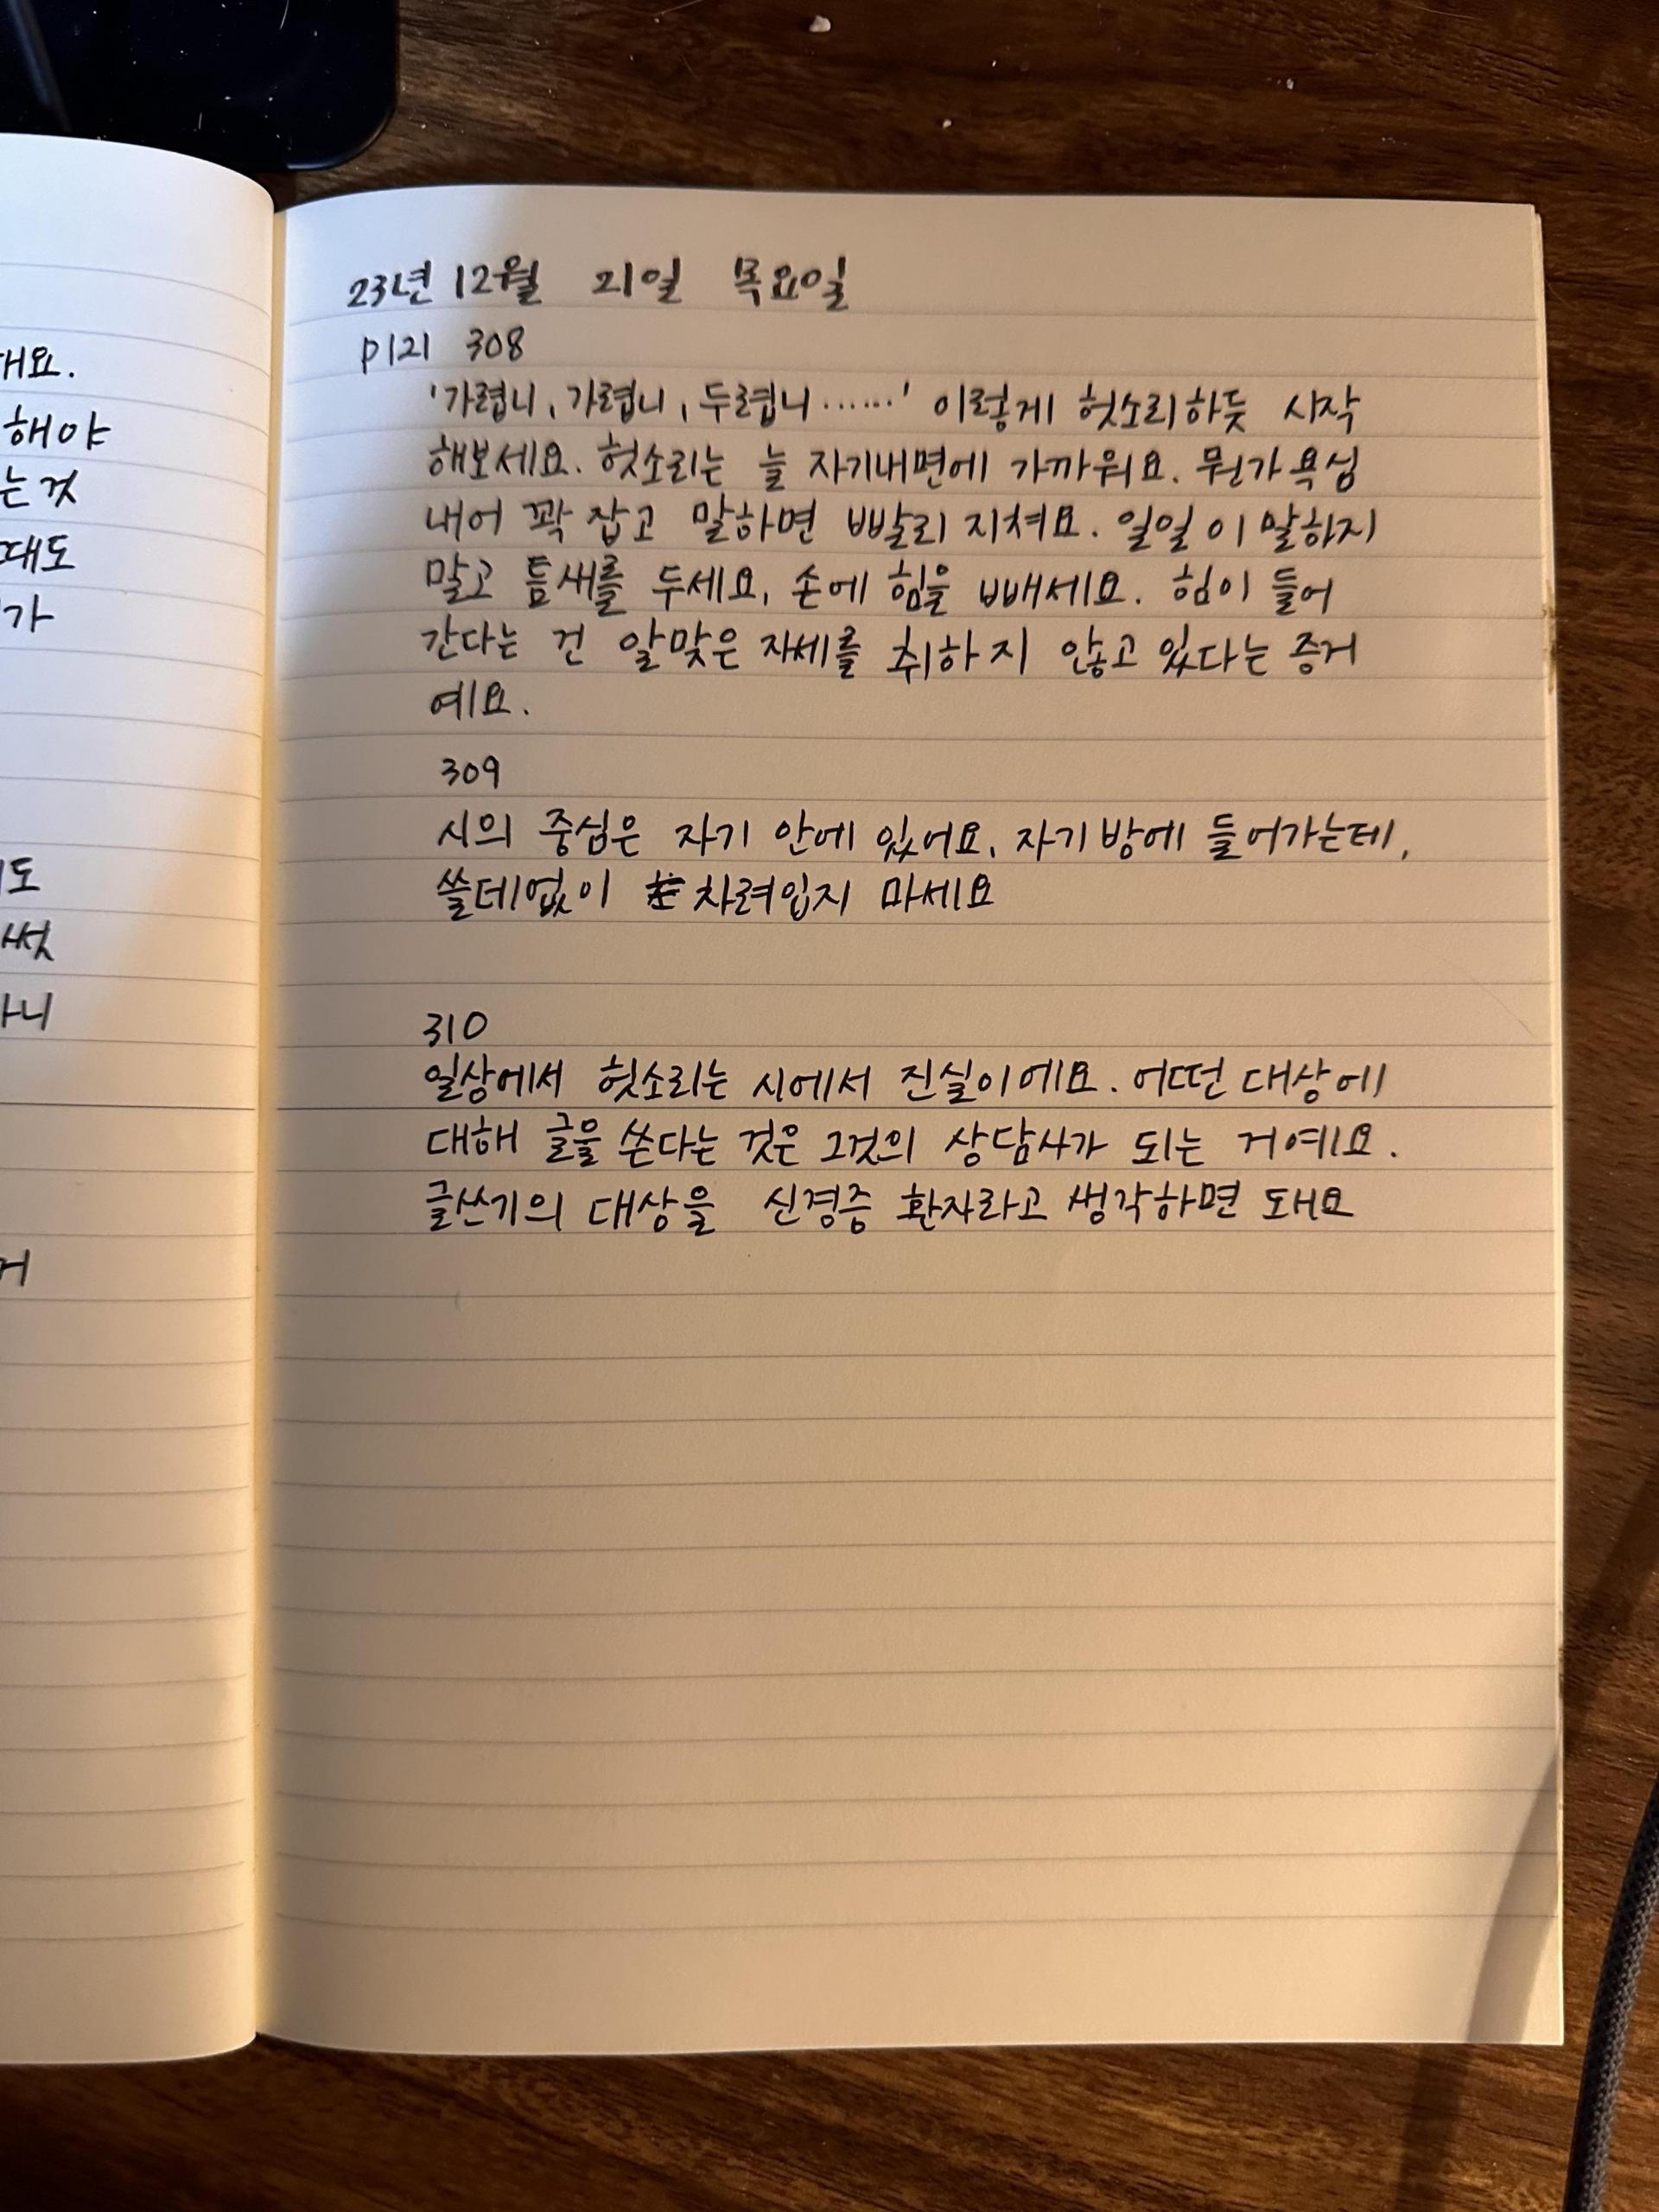 해요.
해야
는 것
때도
가
도
써
아니
거
23년 12월 21일 목요일
p121 308
'가렵니, 가렵니, 두렵니……' 이렇게 헛소리하듯 시작
해보세요. 헛소리는 늘 자기내면에 가까워요. 뭔가 욕심
내어 꽉 잡고 말하면 빨리 지쳐요. 일일이 말하지
말고 틈새를 두세요, 손에 힘을 빼세요. 힘이 들어
간다는 건 알맞은 자세를 취하지 않고 있다는 증거
예요.
309
시의 중심은 자기 안에 있어요, 자기 방에 들어가는데,
쓸데없이 차려입지 마세요
310
일상에서 헛소리는 시에서 진실이에요. 어떤 대상에
대해 글을 쓴다는 것은 그것의 상담사가 되는 거예요.
글쓰기의 대상을 신경증 환자라고 생각하면 돼요